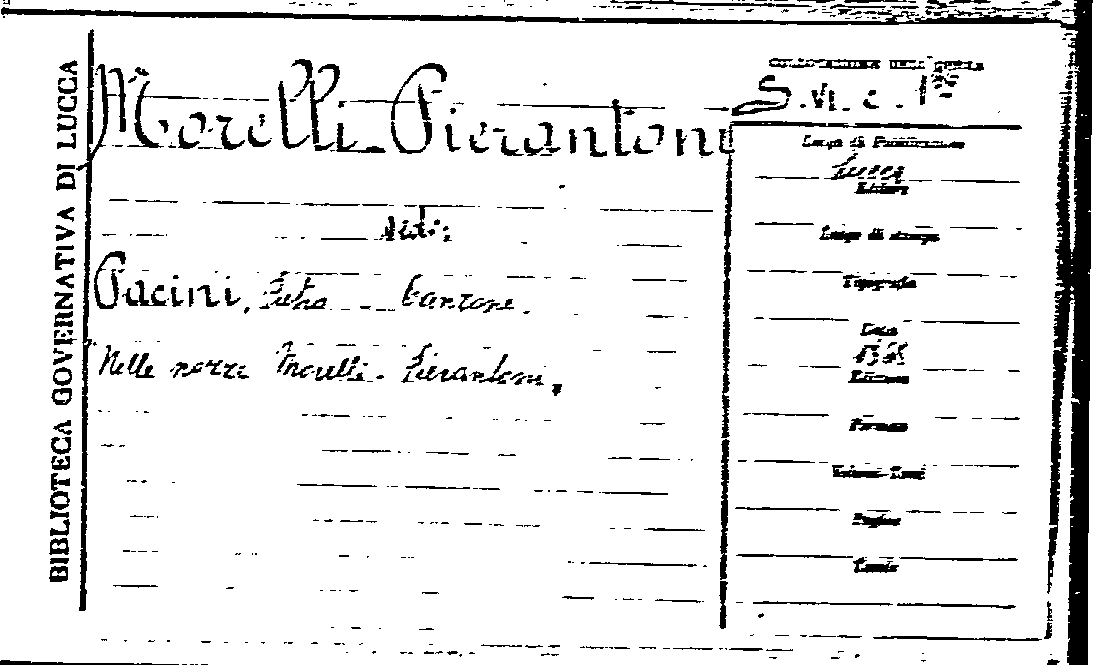 BIBLIOTECA GOVERNATIVA DI LUCCA
Morelli-Pierantoni
Vedi:
Pacini, Pietro - Canzone.
Nelle nozze Morelli-Pierantoni.
COLLOCAZIONE DELL'OPERA
S. VI. c.
Luogo di Pubblicazione
Lucca
Editore
Luogo di stampa
Tipografia
Data
Edizione
Formato
Volumi-Tomi
Pagine